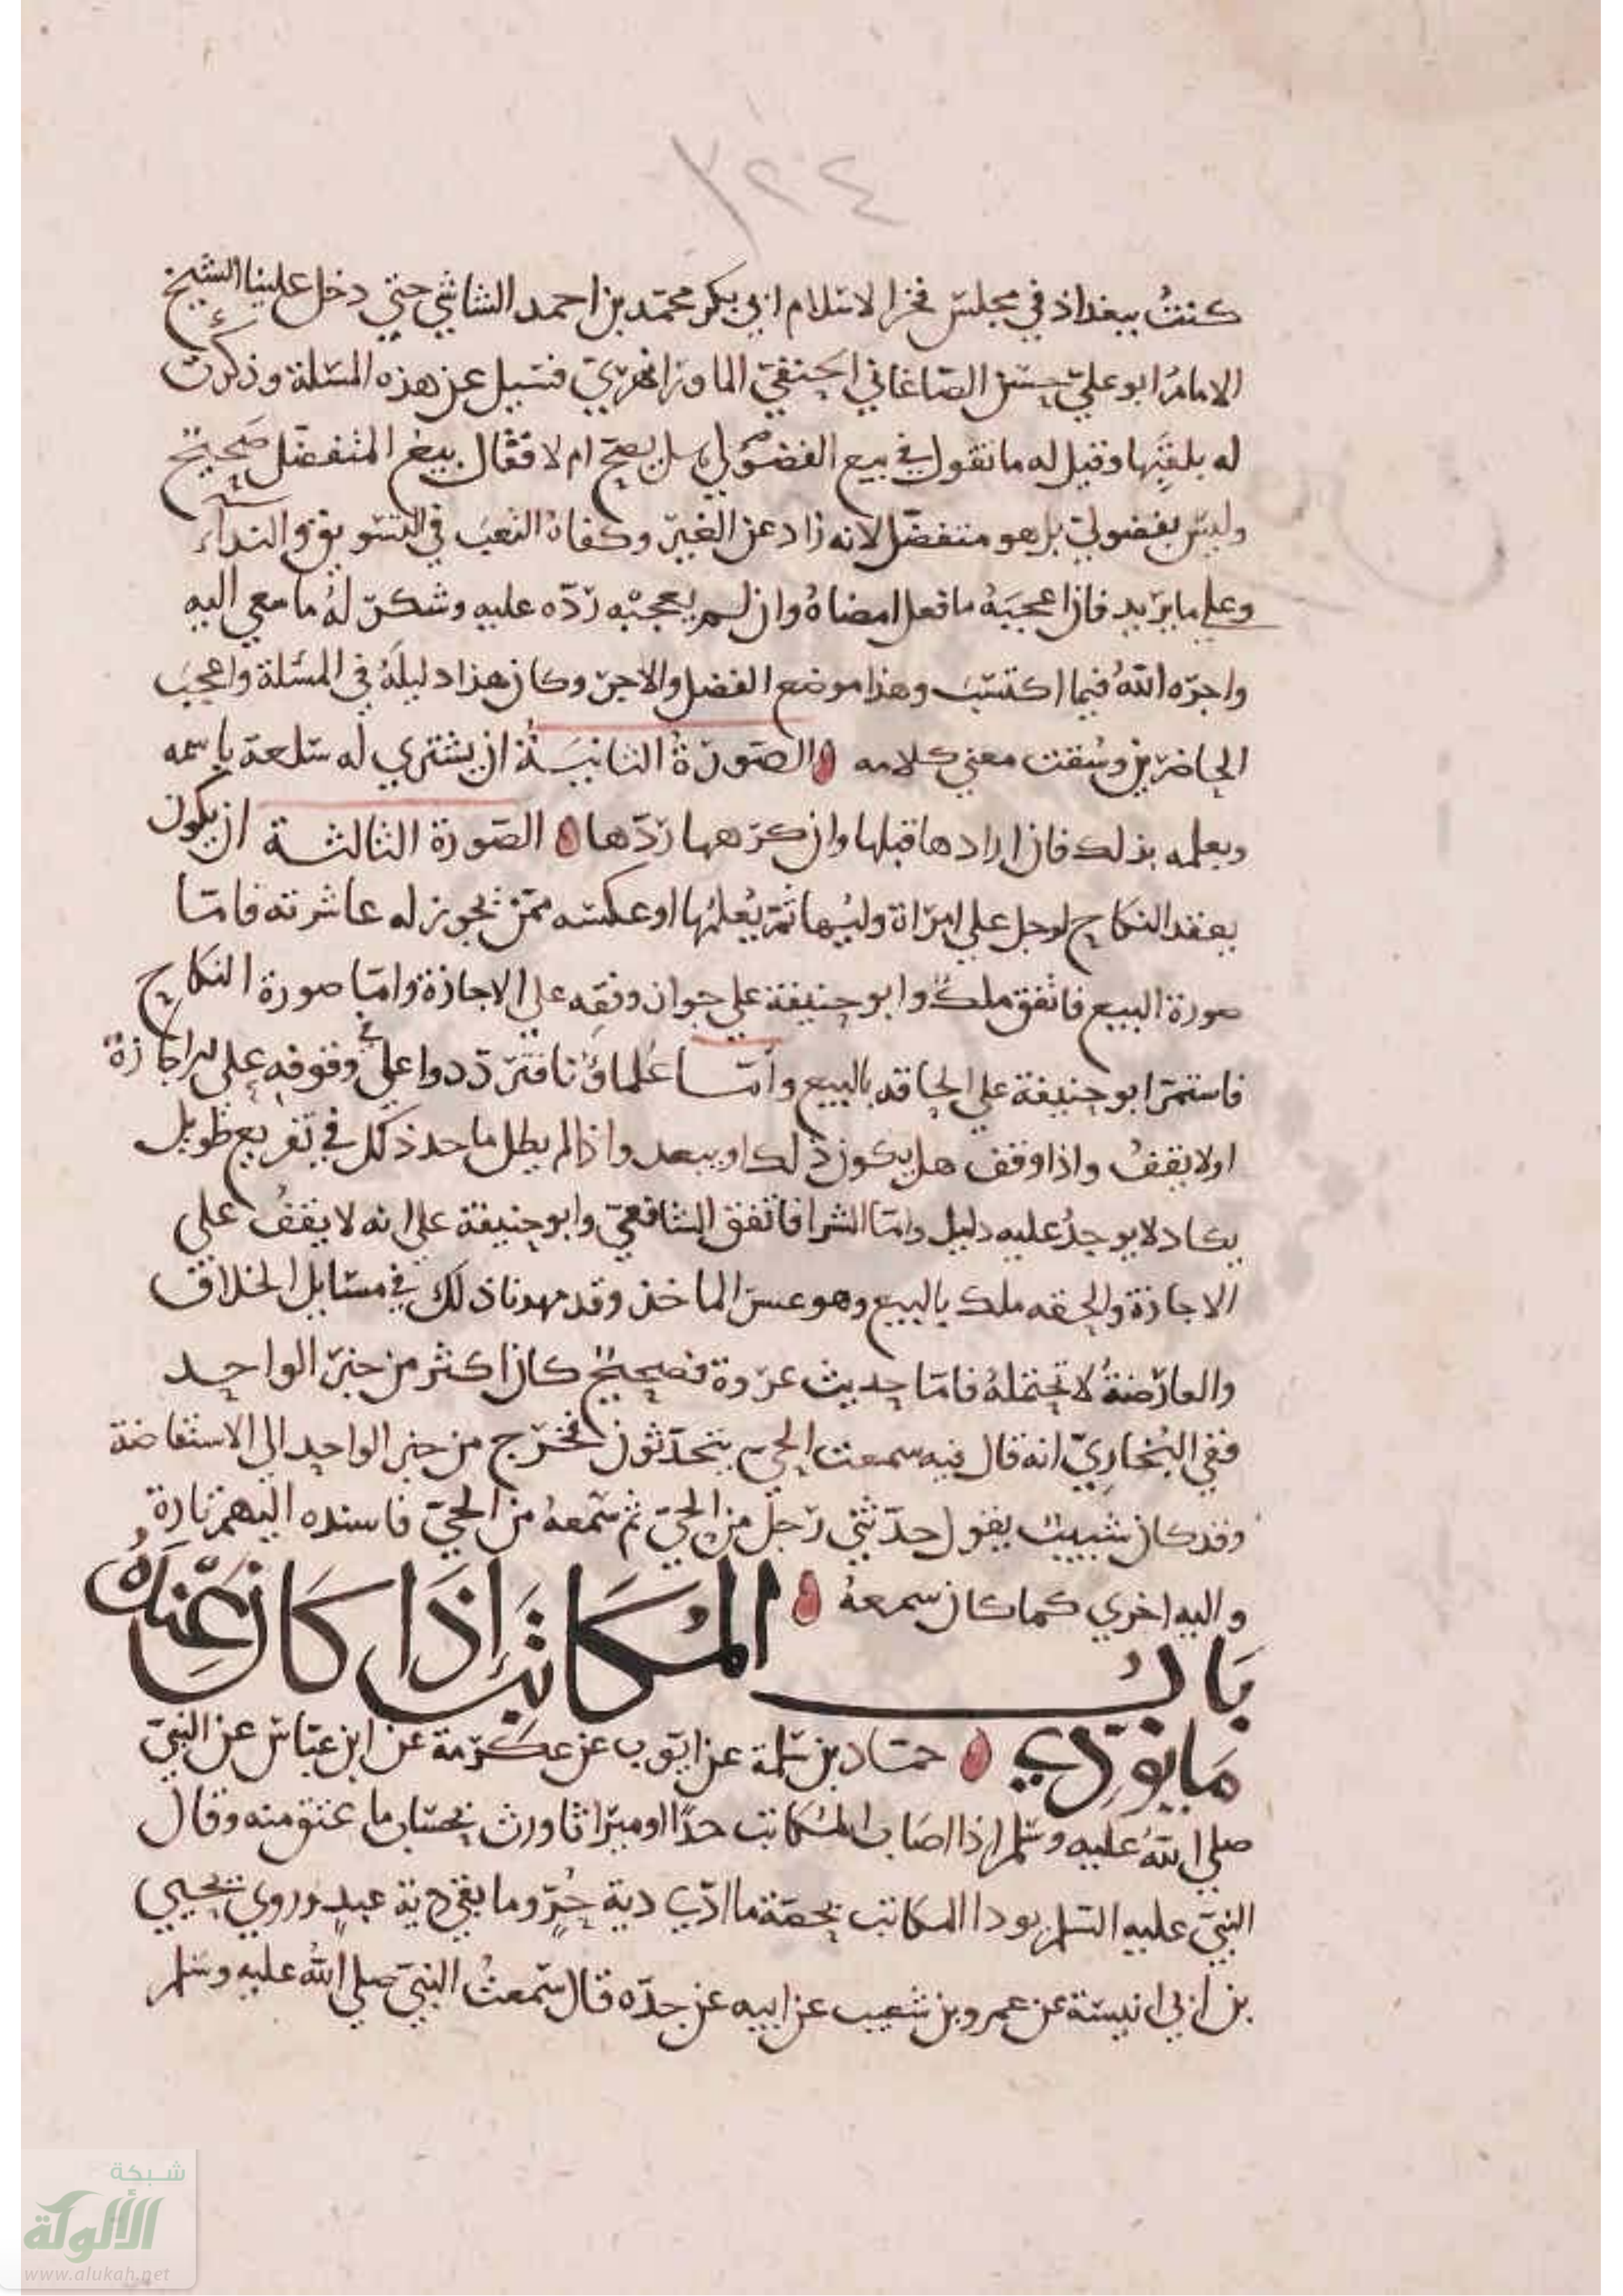 ٣٢٤
كنتُ ببغداذ في مجلس فخر الاسلام ابي بكر محمّد بن احمد الشاشي حتي دخل علينا الشيخ
الامامُ ابو عليّ حسن الصّاغاني الحنفيّ الماورانهريّ فسيل عن هذه المسلة وذكرت
له بلقبها وقيل له ما تقول في بيع الفضولي هل يصح ام لا فقال بيع المتفضّل صحيح
وليس بفضوليّ بل هو متفضّل لانه زاد عن الغير وكفاهُ التعبَ في التسويق والنداء
وعلي ما يريد فان اعجبَهُ ما فعل امضاهُ وان لم يعجبْه ردّه عليه وشكر لهُ ما سعي اليه
واجرّه اللهُ فيما اكتسَبَ وهذا موضع الفضل والاجر وكان هذا دليلَهُ في المسئلة واعجبَ
الحاضرين وسُقت معني كلامه الصّورةُ الثانيَةُ ان يشتري له سلعة باسمه
ويعلمه بذلك فان ارادها قبلها وان كرهها ردّها الصّورة الثالثة ان يكون
يعقد النكاح لرجل علي امرأة وليُها ثمّ يُعلمُها او عكسه ممّن يجوز له عاشرته فامّا
صورة البيع فاتفق ملك وابو حنيفة علي جواز وقفِه علي الاجازة وامّا صورة النكاح
فاستمرّ ابو حنيفة علي الحاقه بالبيع وأمّا عُلماؤنا فتردّدوا علي في وقوفه علي الاجازة
اولا يقفُ واذا وقف هل يكون ذلك او يبعد واذا لم يطل ما حد ذلك في تفريع طويل
يكاد لا يوجدُ عليه دليل وامّا الشرا فاتفق الشافعيّ وابو حنيفة علي انه لا يقفُ علي
الاجازة والحقه ملك بالبيع وهو عسر الماخذ وقد مهدنا ذلك في مسايل الخلاف
والعارضةُ لا تحتملهُ فامّا حديث عروة فصحيح كان اكثر من خبر الواحد
ففي البُخاريّ انه قال فيه سمعت الحيّ يتحدّثون فخرج من خبر الواحد الي الاستفاضة
وقد كان شبيب يقول حدّثني رجل من الحيّ ثم سّمعهُ من الحيّ فاسنده اليهم تارة
واليه اخري كما كان سمعهُ
بَابُ المُكَاتَبَ إِذَا كَانَ عِنْدَهُ
مَا يُؤدّي حمّاد بن سَلمة عن ايّوب عن عكرمة عن ابن عبّاس عن النبيّ
صلي اللهُ عليه وسّلم اذا اصَاب المُكاتب حدًّا او ميراثا ورث بحسَاب ما عتق منه وقال
النبيّ عليه السّلم يودا المكاتب بحصّة ما ادّي دية حُرٍّ وما بقي دية عبدٍ وروي يحيي
بن ابي انيسة عن عمرو بن شعيب عن ابيه عن جدّه قال سّمعتُ النبيّ صلي اللهُ عليه وسَلم
شبكة
الألوكة
www.alukah.net